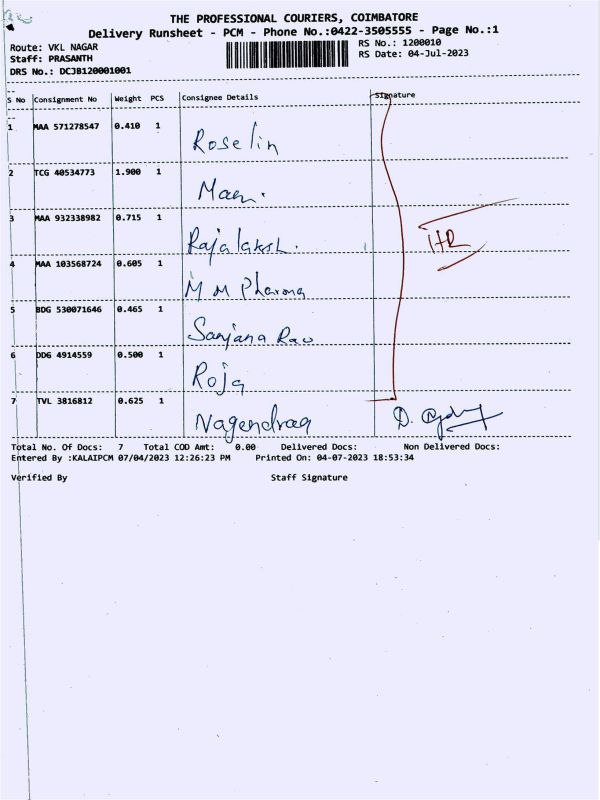 THE PROFESSIONAL COURIERS, COIMBATORE
Delivery Runsheet - PCM - Phone No.:0422-3505555 - Page No.:1
Route: VKL NAGAR
RS No.: 1200010
Staff: PRASANTH
RS Date: 04-Jul-2023
DRS No.: DCJB120001001
S No Consignment No Weight PCS Consignee Details Signature
1 MAA 571278547 0.410 1 Roselin
2 TCG 40534773 1.900 1
3 MAA 932338982 0.715 1 Rajalaksh.
4 MAA 103568724 0.605 1 M M Pharma
5 BDG 530071646 0.465 1 Sanjana Rao
6 DDG 4914559 0.500 1 Roja
7 TVL 3816812 0.625 1 D.
Total No. Of Docs: 7 Total COD Amt: 0.00 Delivered Docs: Non Delivered Docs:
Entered By :KALAIPCM 07/04/2023 12:26:23 PM Printed On: 04-07-2023 18:53:34
Verified By Staff Signature